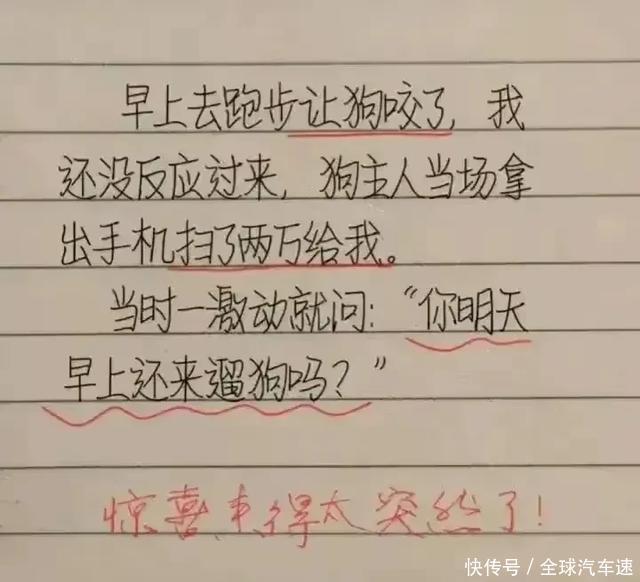 早上去跑步让狗咬了,我
还没反应过来,狗主人当场拿
出手机扫了两万给我。
当时一激动就问:“你明天
早上还来遛狗吗?”
惊喜来得太突然了!
快传号/全球汽车速